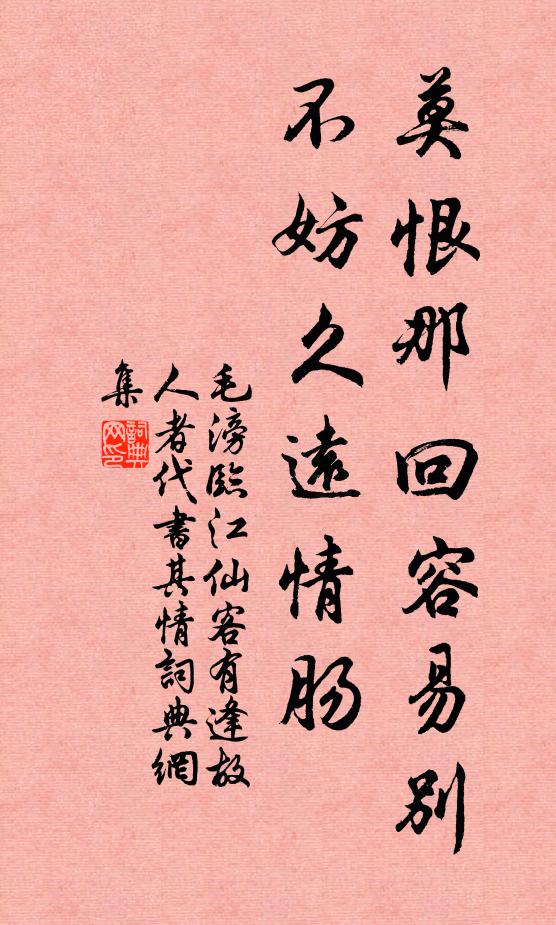 莫恨那回容易别
不妨久遠情肠
毛滂臨江仙客有逢故
人者代書其情詞典網
集
詞典网印